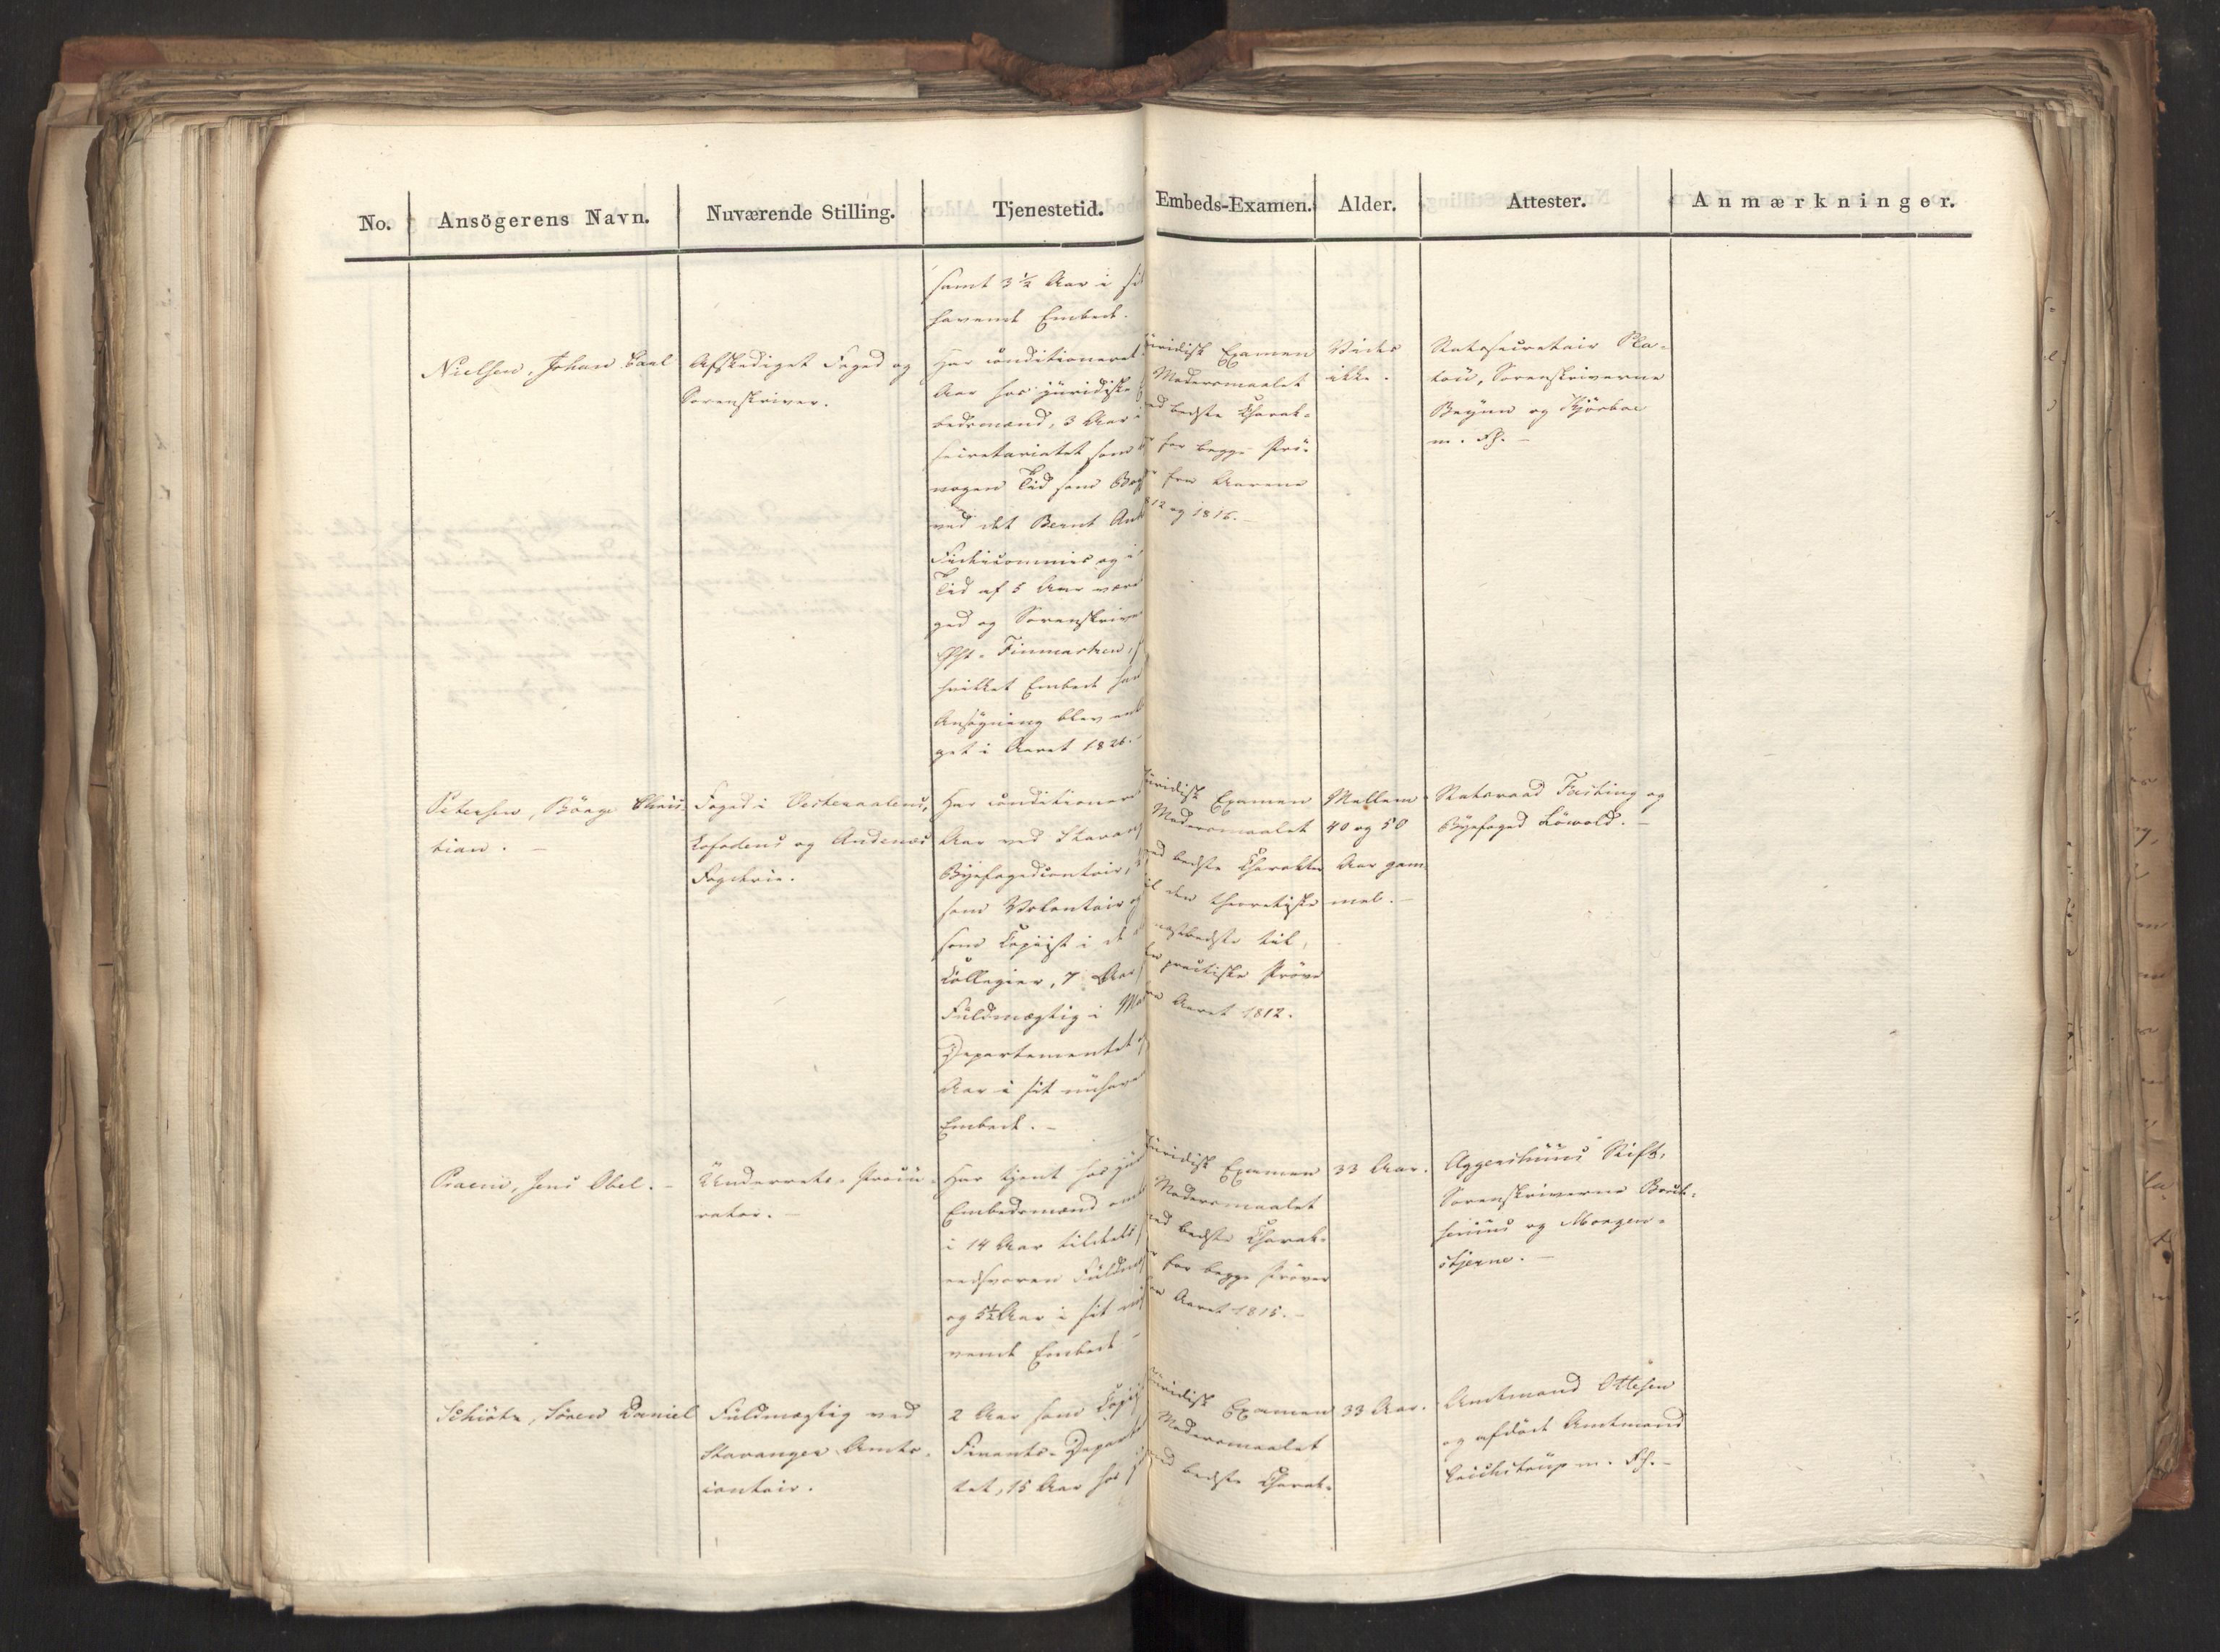 No.
Ansögerens Navn.
Nuværende Stilling.
Tjenestetid.
Embeds-Examen.
Alder.
Attester.
Anmærkninger.
samt 3½ Aar i
havende Embede.
Nielsen, Johan Carl
Afskediget Foged og
Sorenskriver.
Har conditioneret
Aar hos juridiske
bedsmænd, 3 Aar i
secretariatet som
nogen Tid som
ved det Bernt
Fideicommis og i
Tid af 5 Aar være
ged og Sorenskriver
Øst-Finmarken,
hvilket Embede han
Ansøgning blev
get i Aaret 1826.
juridisk Examen
Modersmaalet
med bedste Charak-
for begge Prö-
fra Aarene
1812 og 1816.
Vides
ikke.
Statssecretair Pla-
toü, Sorenskriverne
Beÿnn og Kjörboe
m. Fl.
Petersen, Börge Chris-
tian.
Foged i Vesteraalens,
Lofodens og Andenæs
Fogderie.
Har conditioneret
Aar ved Stavanger
Byefogedcontoir,
som Volontair og
som Copiist i de
Collegier, 7 Aar
Fuldmægtig i
Departementet
Aar i sit nühave
Embede.
Juridisk Examen
Modersmaalet
med bedste Charakter
til den theoretiske
næstbedste til
den practiske Pröve
fra Aaret 1812.
Mellem
40 og 50
Aar gam-
mel.
Statsraad Fasting og
Byefoged Löwold.
Praem, Jens Obel.
Underrets-Procu-
rator.
Har tjent hos
Embedsmænd
i 14 Aar tildeels
eedsvoren Fuldm
og 5½ Aar i sit
vende Embede
Juridisk Examen
Modersmaalet
med bedste Charak-
for begge Pröver
fra Aaret 1815.
33 Aar.
Aggershuus Stift,
Sorenskriverne
og Morgen-
stjerne.
Schiötz, Sören Daniel
Fuldmægtig ved
Stavanger Amts-
contoir.
2 Aar som Copiist
Finants-Departe
tet, 15 Aar hos
juridisk Examen
Modersmaalet
med bedste Charak-
33 Aar.
Amtmand Ottesen
og afdöde Amtmand
m. Fl.